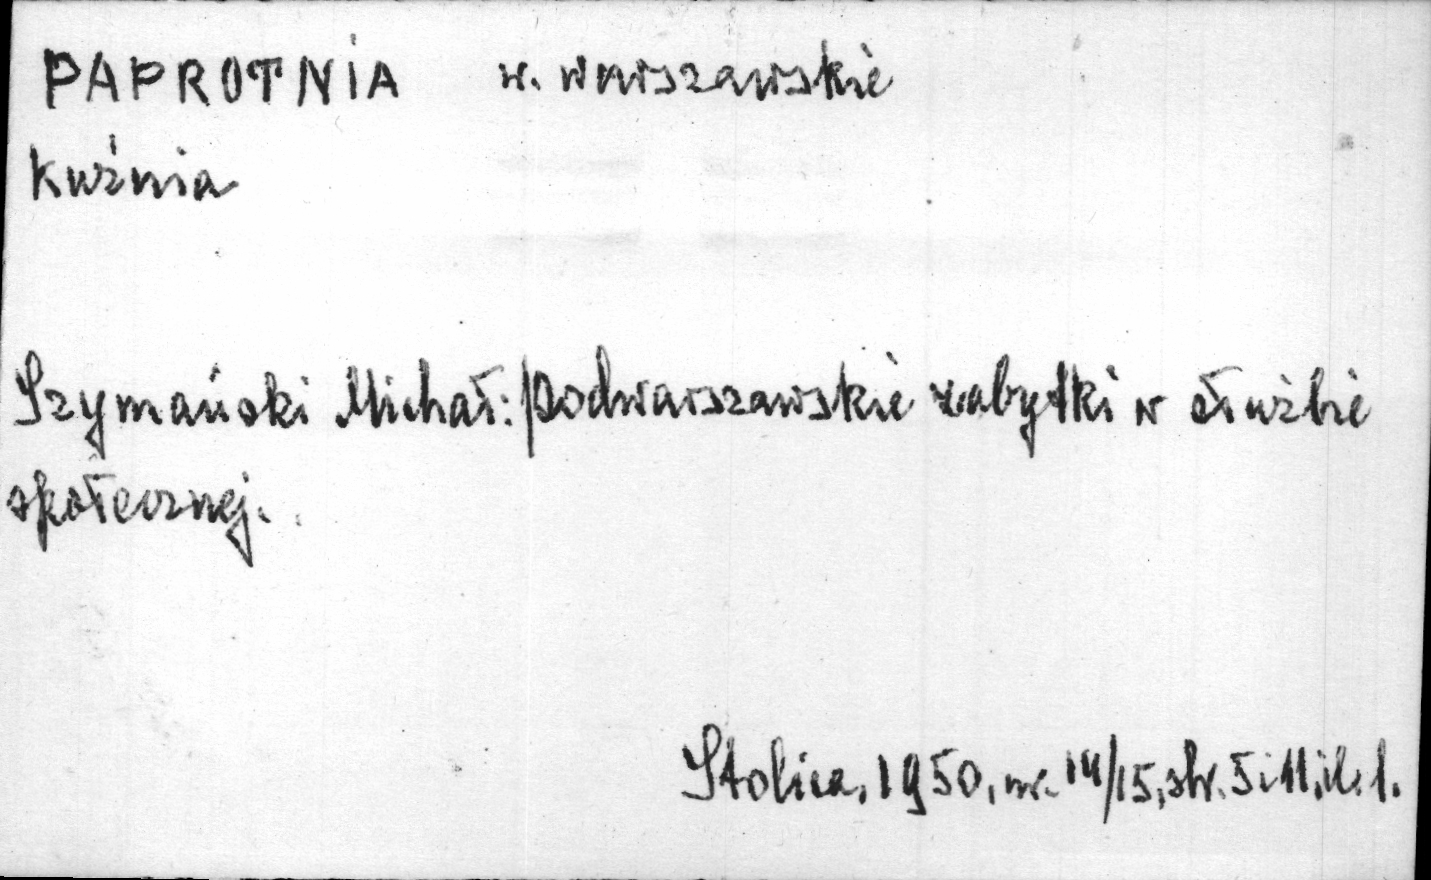 PAPROTNIA w. warszawskie
kuźnia
Szymański Michał: Podwarszawskie zabytki w służbie
społecznej.
Stolica, 1950, nr. 14/15, str. 5 i 11, il. 1.